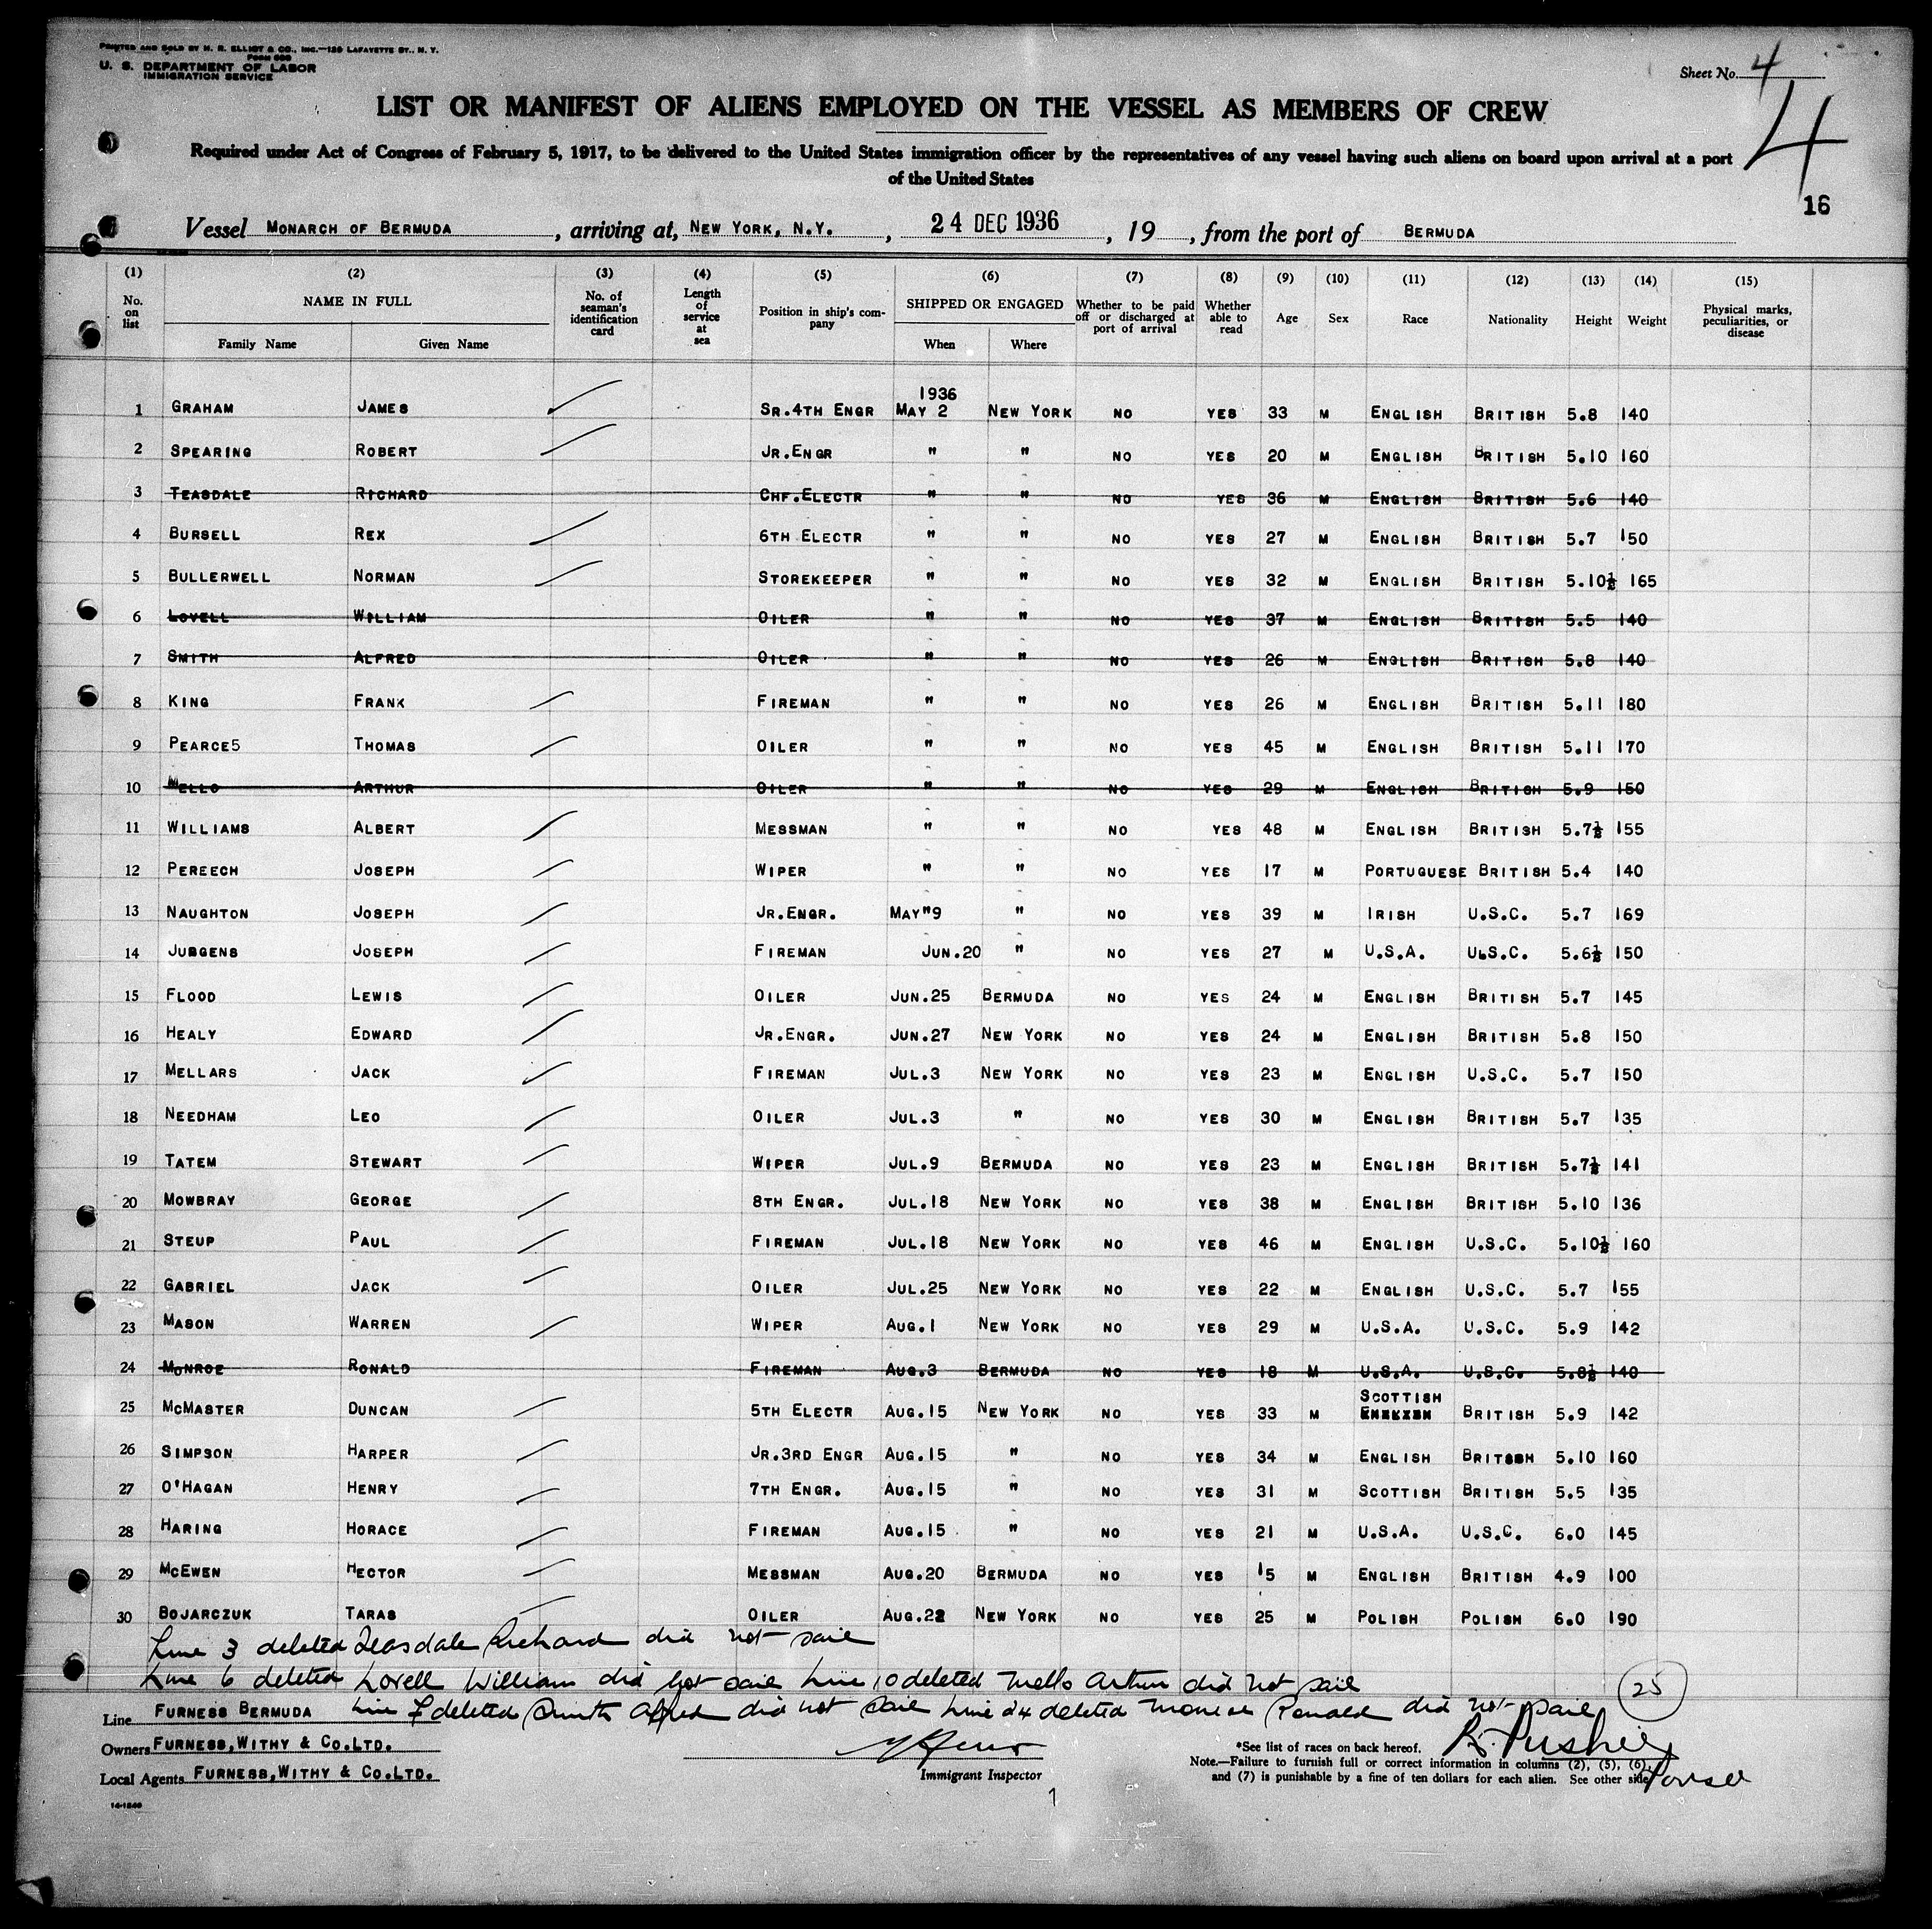 PRINTED AND SOLD BY H. R. ELLIOT & CO., INC.—139 LAFAYETTE ST., N. Y.
Form 689
U. S. DEPARTMENT OF LABOR
IMMIGRATION SERVICE
Sheet No. 4
4
16
LIST OR MANIFEST OF ALIENS EMPLOYED ON THE VESSEL AS MEMBERS OF CREW
Required under Act of Congress of February 5, 1917, to be delivered to the United States immigration officer by the representatives of any vessel having such aliens on board upon arrival at a port
of the United States
Vessel MONARCH OF BERMUDA, arriving at, NEW YORK, N.Y., 24 DEC 1936, 19, from the port of BERMUDA
(1) (2) (3) (4) (5) (6) (7) (8) (9) (10) (11) (12) (13) (14) (15)
No. on list NAME IN FULL Family Name Given Name No. of seaman's identification card Length of service at sea Position in ship's company SHIPPED OR ENGAGED When Where Whether to be paid off or discharged at port of arrival Whether able to read Age Sex Race Nationality Height Weight Physical marks, peculiarities, or disease
1936
1 GRAHAM JAMES SR.4TH ENGR MAY 2 NEW YORK NO YES 33 M ENGLISH BRITISH 5.8 140
2 SPEARING ROBERT JR.ENGR " " NO YES 20 M ENGLISH BRITISH 5.10 160
3 TEASDALE RICHARD CHF.ELECTR " " NO YES 36 M ENGLISH BRITISH 5.6 140
4 BURSELL REX 6TH ELECTR " " NO YES 27 M ENGLISH BRITISH 5.7 150
5 BULLERWELL NORMAN STOREKEEPER " " NO YES 32 M ENGLISH BRITISH 5.10½ 165
6 LOVELL WILLIAM OILER " " NO YES 37 M ENGLISH BRITISH 5.5 140
7 SMITH ALFRED OILER " " NO YES 26 M ENGLISH BRITISH 5.8 140
8 KING FRANK FIREMAN " " NO YES 26 M ENGLISH BRITISH 5.11 180
9 PEARCE5 THOMAS OILER " " NO YES 45 M ENGLISH BRITISH 5.11 170
10 MELLO ARTHUR OILER " " NO YES 29 M ENGLISH BRITISH 5.9 150
11 WILLIAMS ALBERT MESSMAN " " NO YES 48 M ENGLISH BRITISH 5.7½ 155
12 PEREECH JOSEPH WIPER " " NO YES 17 M PORTUGUESE BRITISH 5.4 140
13 NAUGHTON JOSEPH JR.ENGR. MAY"9 " NO YES 39 M IRISH U.S.C. 5.7 169
14 JURGENS JOSEPH FIREMAN JUN.20 " NO YES 27 M U.S.A. U.S.C. 5.6½ 150
15 FLOOD LEWIS OILER JUN.25 BERMUDA NO YES 24 M ENGLISH BRITISH 5.7 145
16 HEALY EDWARD JR.ENGR. JUN.27 NEW YORK NO YES 24 M ENGLISH BRITISH 5.8 150
17 MELLARS JACK FIREMAN JUL.3 NEW YORK NO YES 23 M ENGLISH U.S.C. 5.7 150
18 NEEDHAM LEO OILER JUL.3 " NO YES 30 M ENGLISH BRITISH 5.7 135
19 TATEM STEWART WIPER JUL.9 BERMUDA NO YES 23 M ENGLISH BRITISH 5.7½ 141
20 MOWBRAY GEORGE 8TH ENGR. JUL.18 NEW YORK NO YES 38 M ENGLISH BRITISH 5.10 136
21 STEUP PAUL FIREMAN JUL.18 NEW YORK NO YES 46 M ENGLISH U.S.C. 5.10½ 160
22 GABRIEL JACK OILER JUL.25 NEW YORK NO YES 22 M ENGLISH U.S.C. 5.7 155
23 MASON WARREN WIPER AUG.1 NEW YORK NO YES 29 M U.S.A. U.S.C. 5.9 142
24 MONROE RONALD FIREMAN AUG.3 BERMUDA NO YES 18 M U.S.A. U.S.C. 5.8½ 140
25 MCMASTER DUNCAN 5TH ELECTR AUG.15 NEW YORK NO YES 33 M SCOTTISH BRITISH 5.9 142
26 SIMPSON HARPER JR.3RD ENGR AUG.15 " NO YES 34 M ENGLISH BRITISH 5.10 160
27 O'HAGAN HENRY 7TH ENGR. AUG.15 " NO YES 31 M SCOTTISH BRITISH 5.5 135
28 HARING HORACE FIREMAN AUG.15 " NO YES 21 M U.S.A. U.S.C. 6.0 145
29 MCEWEN HECTOR MESSMAN AUG.20 BERMUDA NO YES 15 M ENGLISH BRITISH 4.9 100
30 BOJARCZUK TARAS OILER AUG.22 NEW YORK NO YES 25 M POLISH POLISH 6.0 190
Line 3 deleted Teasdale Richard did not sail
Line 6 deleted Lovell William did not sail Line 10 deleted Mello Arthur did not sail
Line 7 deleted Smith Alfred did not sail Line 24 deleted Monroe Ronald did not sail
25
Line FURNESS BERMUDA
Owners FURNESS, WITHY & CO.LTD.
Local Agents FURNESS, WITHY & CO.LTD.
Immigrant Inspector
*See list of races on back hereof.
Note.—Failure to furnish full or correct information in columns (2), (5), (6),
and (7) is punishable by a fine of ten dollars for each alien. See other side.
Purser
14-1240
1